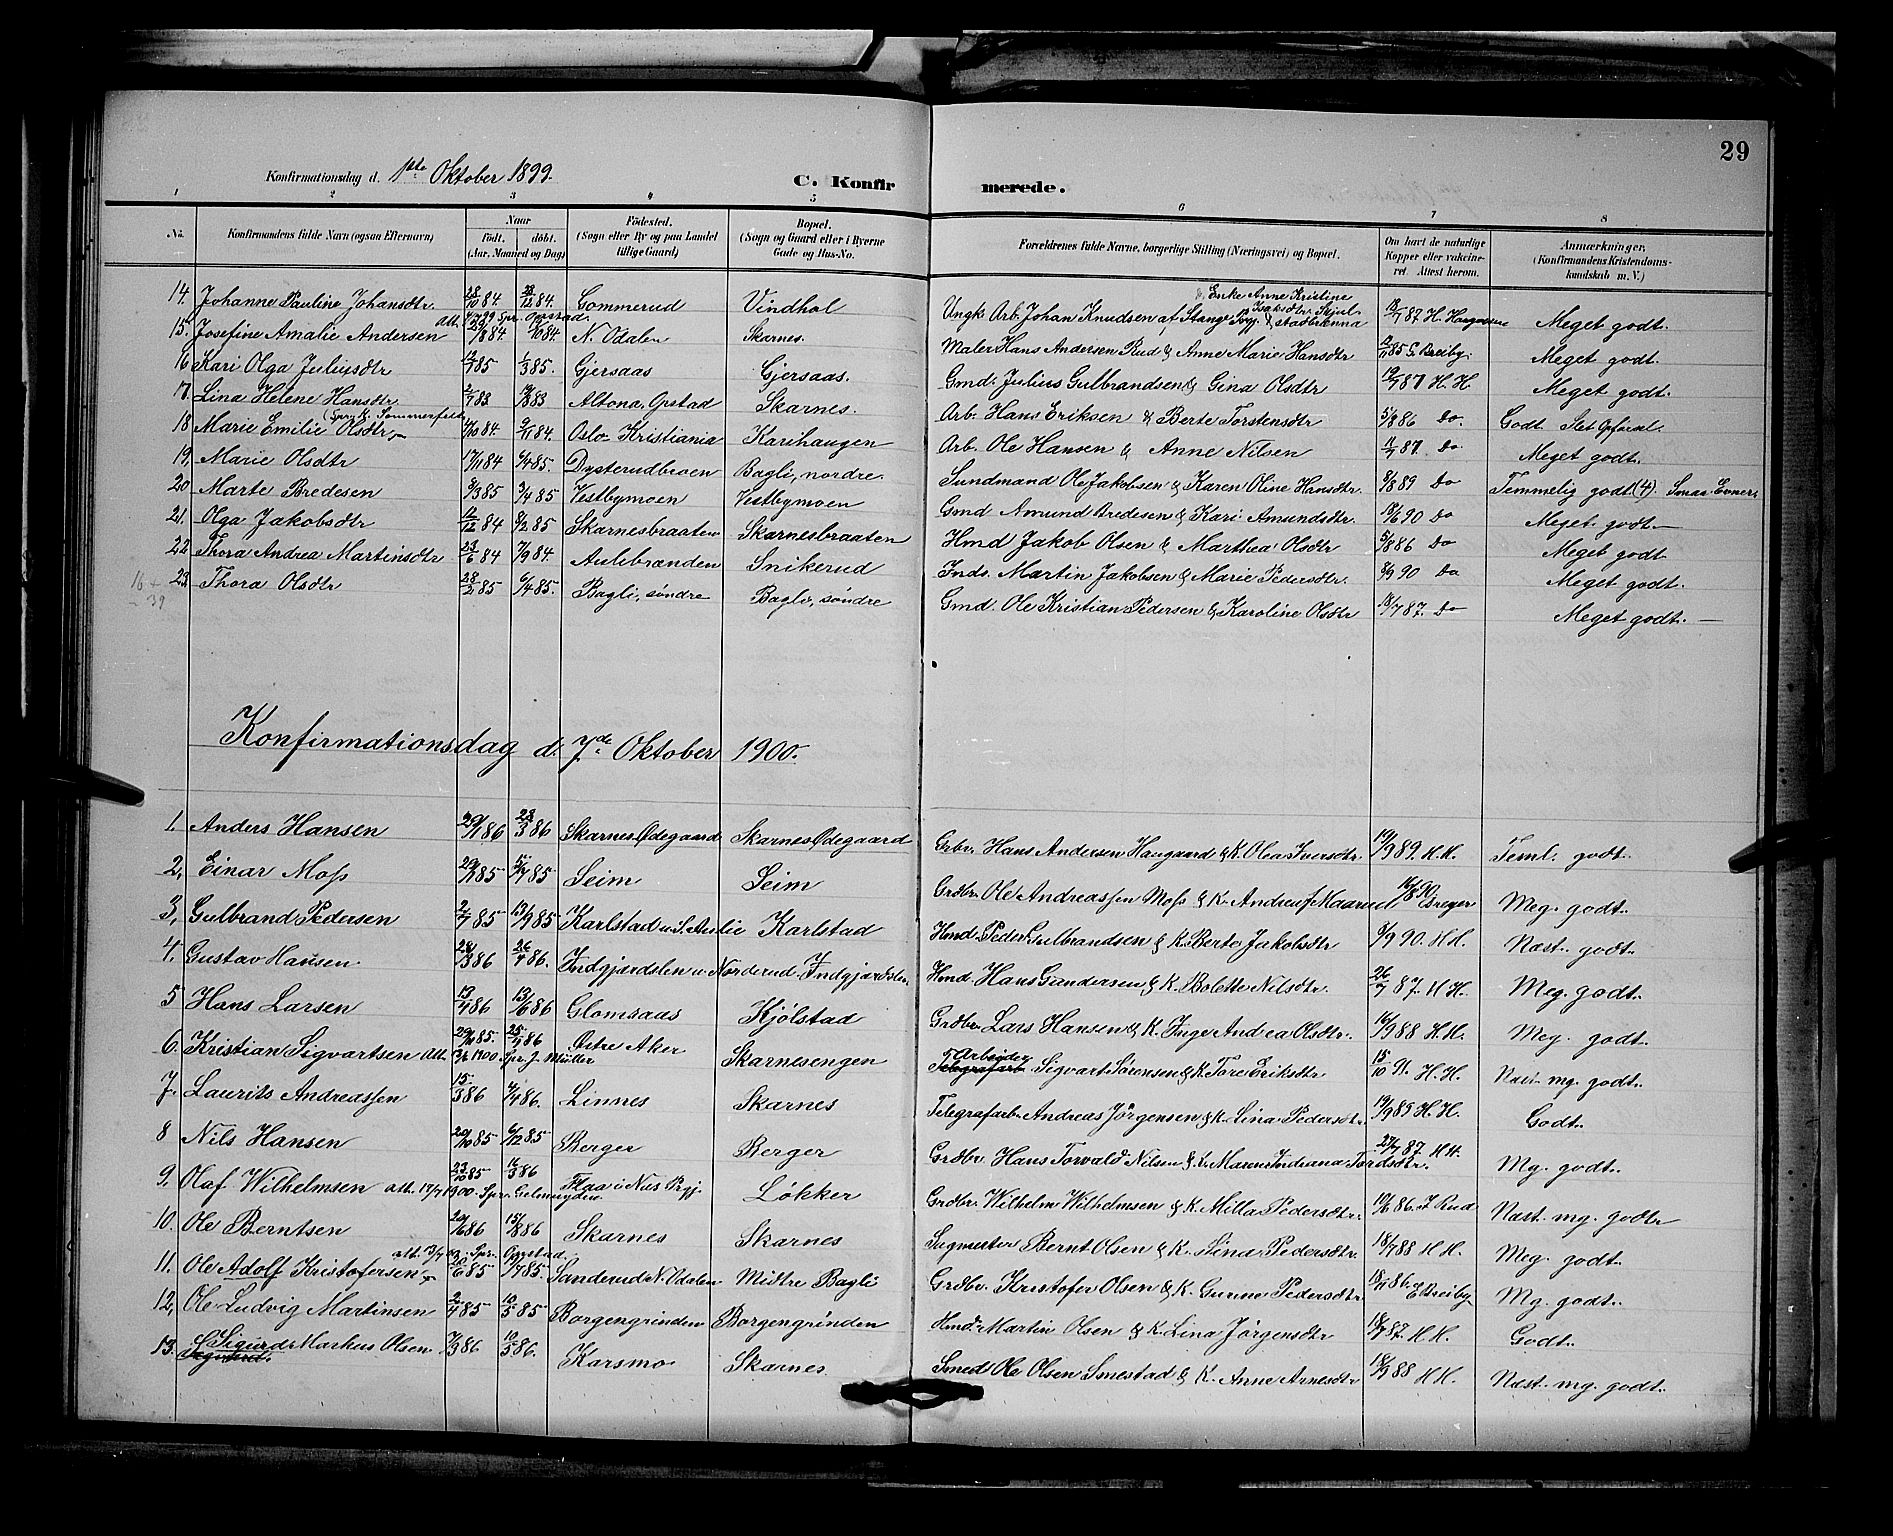 29
Konfirmationsdag d. 1ste Oktober 1899.
C. Konfirmerede.
1 2 3 4 5 6 7 8
No. Konfirmandens fulde Navn (ogsaa Efternavn) Naar Født. døbt. (Aar, Maaned og Dag) Fødested. (Sogn eller By og paa Landet tillige Gaard) Bopæl. (Sogn og Gaard eller i Byerne Gade og Hus-No. Forældrenes fulde Navne, borgerlige Stilling (Næringsvei) og Bopæl. Om havt de naturlige Kopper eller vakcineret. Attest herom. Anmærkninger. (Konfirmandens Kristendomskundskab m. V.)
14. Johanne Pauline Johansdtr. 28/10 84 28/12 84. Gommerud Vindhol Ungk. Arb. Johan Knudsen af Stange & Enke Anne Kristine Isaksdtr. 87 H. Meget godt.
15. Josefine Amalie Andersen 84 84. N. Odalen Skarnes. Maler Hans Andersen Rud & Anne Marie Hansdtr 85 Meget godt.
16 Kari Olga Juliusdtr 85 1/3 85. Gjersaas Gjersaas. Gmd. Julius Gulbrandsen & Gina Olsdtr 19/7 87 H. H. Meget godt.
17. Lina Helene Hansdtr. 83 83 Altona, Opstad Skarnes. Arb. Hans Eriksen & Berte Torstensdtr 5/8 86 Do. Godt. Slet Opførsel.
18 Marie Emilie Olsdtr. 84 84. Oslo Kristiania Karihaugen Arb. Ole Hansen & Anne Nilsen 87 Do Meget godt.
19. Marie Olsdtr 17/11 84 6/4 85. Dysterudbroen Bagli, nordre. Sundmand Ole Jakobsen & Karen Oline Hansdtr. 8/8 89 Do Temmelig godt (4). Smaa Evner.
20 Marte Bredesen 3/3 85 3/4 85 Vestbymoen Vestbymoen Gmd Amund Bredesen & Kari Amundsdtr. 18/6 90 Do Meget godt.
21. Olga Jakobsdtr 12/12 84 8/2 85 Skarnesbraaten Skarnesbraaten Hmd Jakob Olsen & Marthea Olsdtr 5/8 86 Do Meget godt
22 Thora Andrea Martinsdtr 23/6 84 7/9 84. Aulibranden Snikerud Inds. Martin Jakobsen & Marie Pedersdtr. 8/9 90 Do Meget godt.
23. Thora Olsdtr 28/2 85 6/4 85. Bagli, søndre Bagli, søndre Gmd. Ole Kristian Pedersen & Karoline Olsdtr 18/7 87. Do Meget godt.
Konfirmationsdag d. 7de Oktober 1900.
1. Anders Hansen 29/1 86 28/3 86 Skarnes Ødegaard Skarnes Ødegaard Grbr. Hans Andersen Haugaard & K. Olea Iversdtr. 19/9 89. H. H. Teml. godt.
2, Einar Moss 85 5/7 85 Seim Seim Grdbr. Ole Andreassen Moss & K. Andrea 16/8 90 Meg. godt.
3, Gulbrand Pedersen 2/7 85 13/9 85 Karlstad u. S. Aulie Karlstad Hmd. Peder Gulbrandsen & K. Berte Jakobsdtr 9/9 90. H H. Næst. godt.
4, Gustav Hansen 28/3 86 26/4 86. Indgjærdslen u. Norderud. Indgjærdslen Hmd. Hans Gundersen & K. Bolette Nilsdtr. 26/7 87. H H. Meg. godt.
5 Hans Larsen 13/4 86 13/6 86 Glomsaas Kjølstad Grdbr. Lars Hansen & K. Inger Andrea Olsdtr. 16/9 88 H. H. Meg. godt.
6. Kristian Sigvartsen 85. 86 Østre Aker Skarnesengen Arbeider Sigvart Sørensen & K. Tore Eriksdtr 15/10 91. H. H. Næst mg. godt.
7. Laurits Andreassen 15/3 86 4/4 86. Linnes Skarnes Telegrafarb. Andreas Jørgensen & K. Lina Pedersdtr. 19/9 85 H. H. Godt.
8 Nils Hansen 20/10 85 6/12 85 Berger Berger Grdbr. Hans Torvald Nilsen & K. Maren Indiana Tordsdtr. 27/7 87. H H. Mg. godt.
9, Olaf Wilhelmsen att. 17/7 1900. Spr. 23/10 85 86 Flaa i Næs Prgj. Løkker Grdbr. Wilhelm Wilhelmsen & K. Milla Pedersdtr. 10/6 86. Rud Næst. mg. godt
10. Ole Berntsen 20/6 86 15/8 86 Skarnes Skarnes Sagmester Bernt Olsen & K. Lina Pedersdtr. 18/7 88 H H. Meg. godt.
11. Ole Adolf Kristofersen 85 19/7 85. Sanderud N. Odalen Midtre Bagli Grdbr. Kristofer Olsen & K. Gunne Pedersdtr. 86. Mg. godt.
12, Ole Ludvig Martinsen 2/4 85 10/5 85 Borgengrinden Borgengrinden Hmd. Martin Olsen & K. Lina Jørgensdtr 87. H H. Godt.
13. Sigurd Markus Olsen 7/3 86 10/5 86. Karsmo Skarnes. Smed Ole Olsen Smestad & K. Anne Arnesdtr 88 H H. Næst. mg. godt.